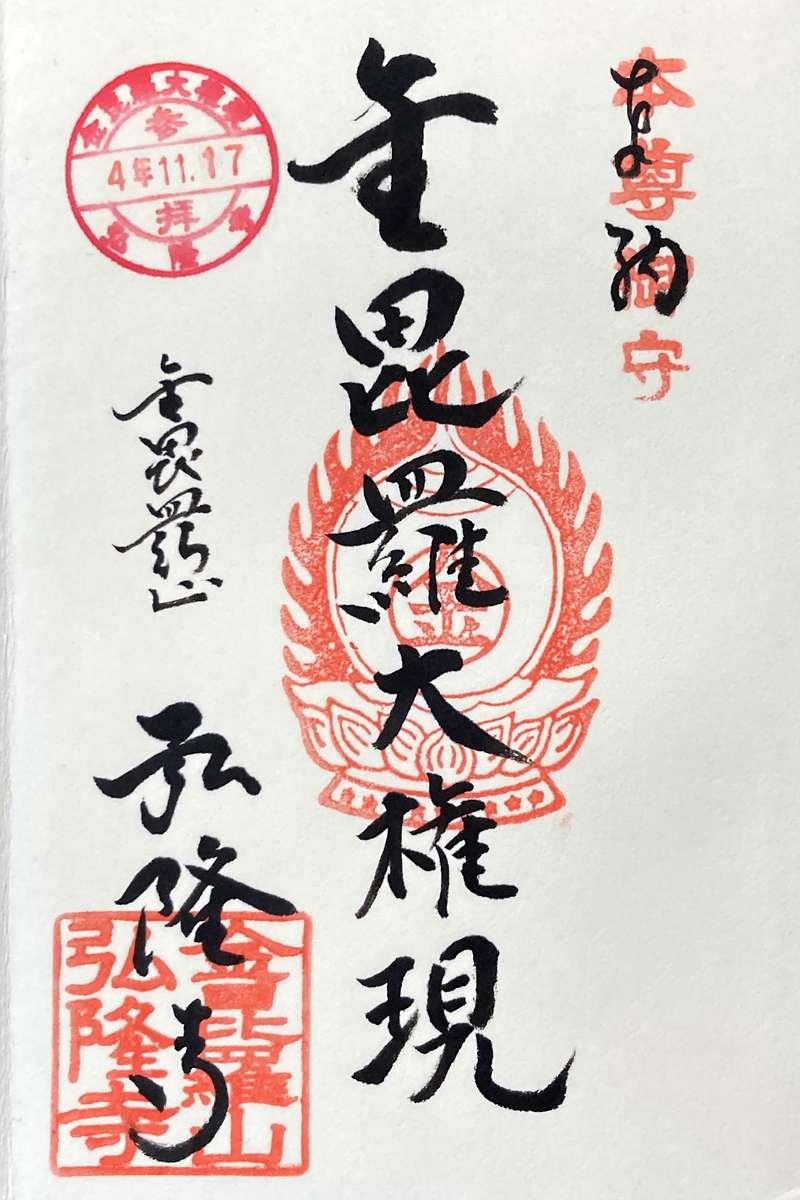 本尊御守
奉納
金毘羅大権現
金
金毘羅大権現
参
4年11.17
拝
弘隆寺
金毘羅山
弘隆寺
金毘羅山
弘隆寺